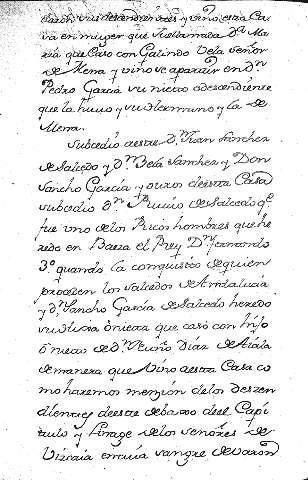 Varon, sus desendientes y vino esta Ca
sa en muger que fue llamada Dª Ma
ria que Caso con Galindo Vela señor
de Mena y vino a eparar en dn
Pedro Garcia su nieto o desendiente
que la huvo y su hermano y la de
Mena.
Subcedio aeste Dn Juan Sanchez
de Salcedo y Dn Vela Sanchez y Don
Sancho Garcia y otros desta Casa
subcedio Dn Rubio de Salcedo qe
fue uno delos Ricos hombres que he
redo en Baeza el Rey Dn fernando
3º quando la conquisto de quien
proceden los salcedos de Andalucia
y dn Sancho Garcia de Salcedo heredo
su ò nieta que casó con hijo
ò nieto de dn Nuño Diaz de Aiala
de manera que Vino aesta Casa co
mo haremos menzion delos deszen
dientes deeste debaxo deel Capi
tulo y linage de los señores de
Vizcaia enuía sangre devaron